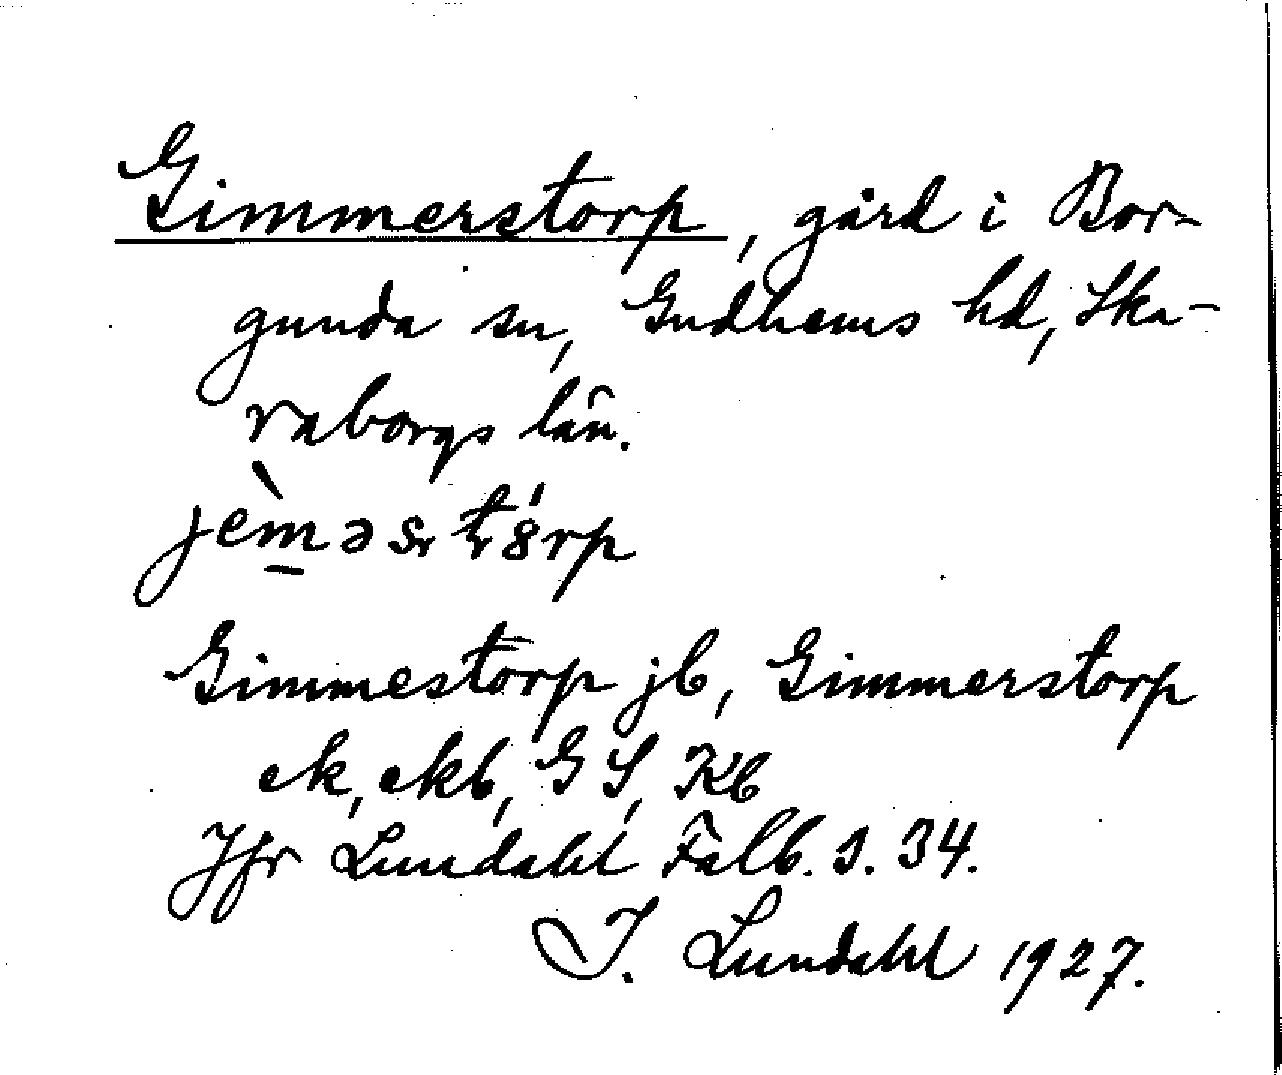 Gimmerstorp, gård i Bor-
gunda sn, Gudhems hd, Ska-
raborgs län.
jèm̱əst8́rp
Gimmestorp jb, Gimmerstorp
ek, ekb, GS, Kb
Jfr Lundahl Falb. s. 34.
I. Lundahl 1927.